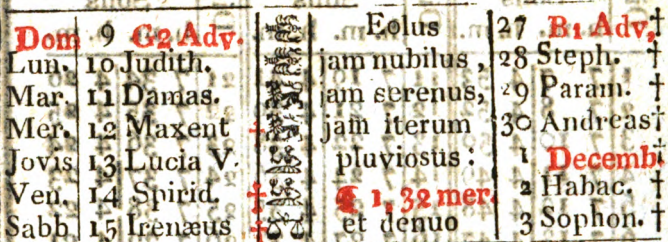 Dom 9 G2 Adv. Eolus 27 B1 Adv, †
Lun. 10 Judith. jam nubilus, 28 Steph. †
Mar. 11 Damas. jam serenus, 29 Param. †
Mer. 12 Maxent † jam iterum 30 Andreas †
Jovis 13 Lucia V. pluviosus: 1 Decemb.
Ven. 14 Spirid. † ¶ 1, 32 mer. 2 Habac. †
Sabb 15 Irenæus † et denuo 3 Sophon. †